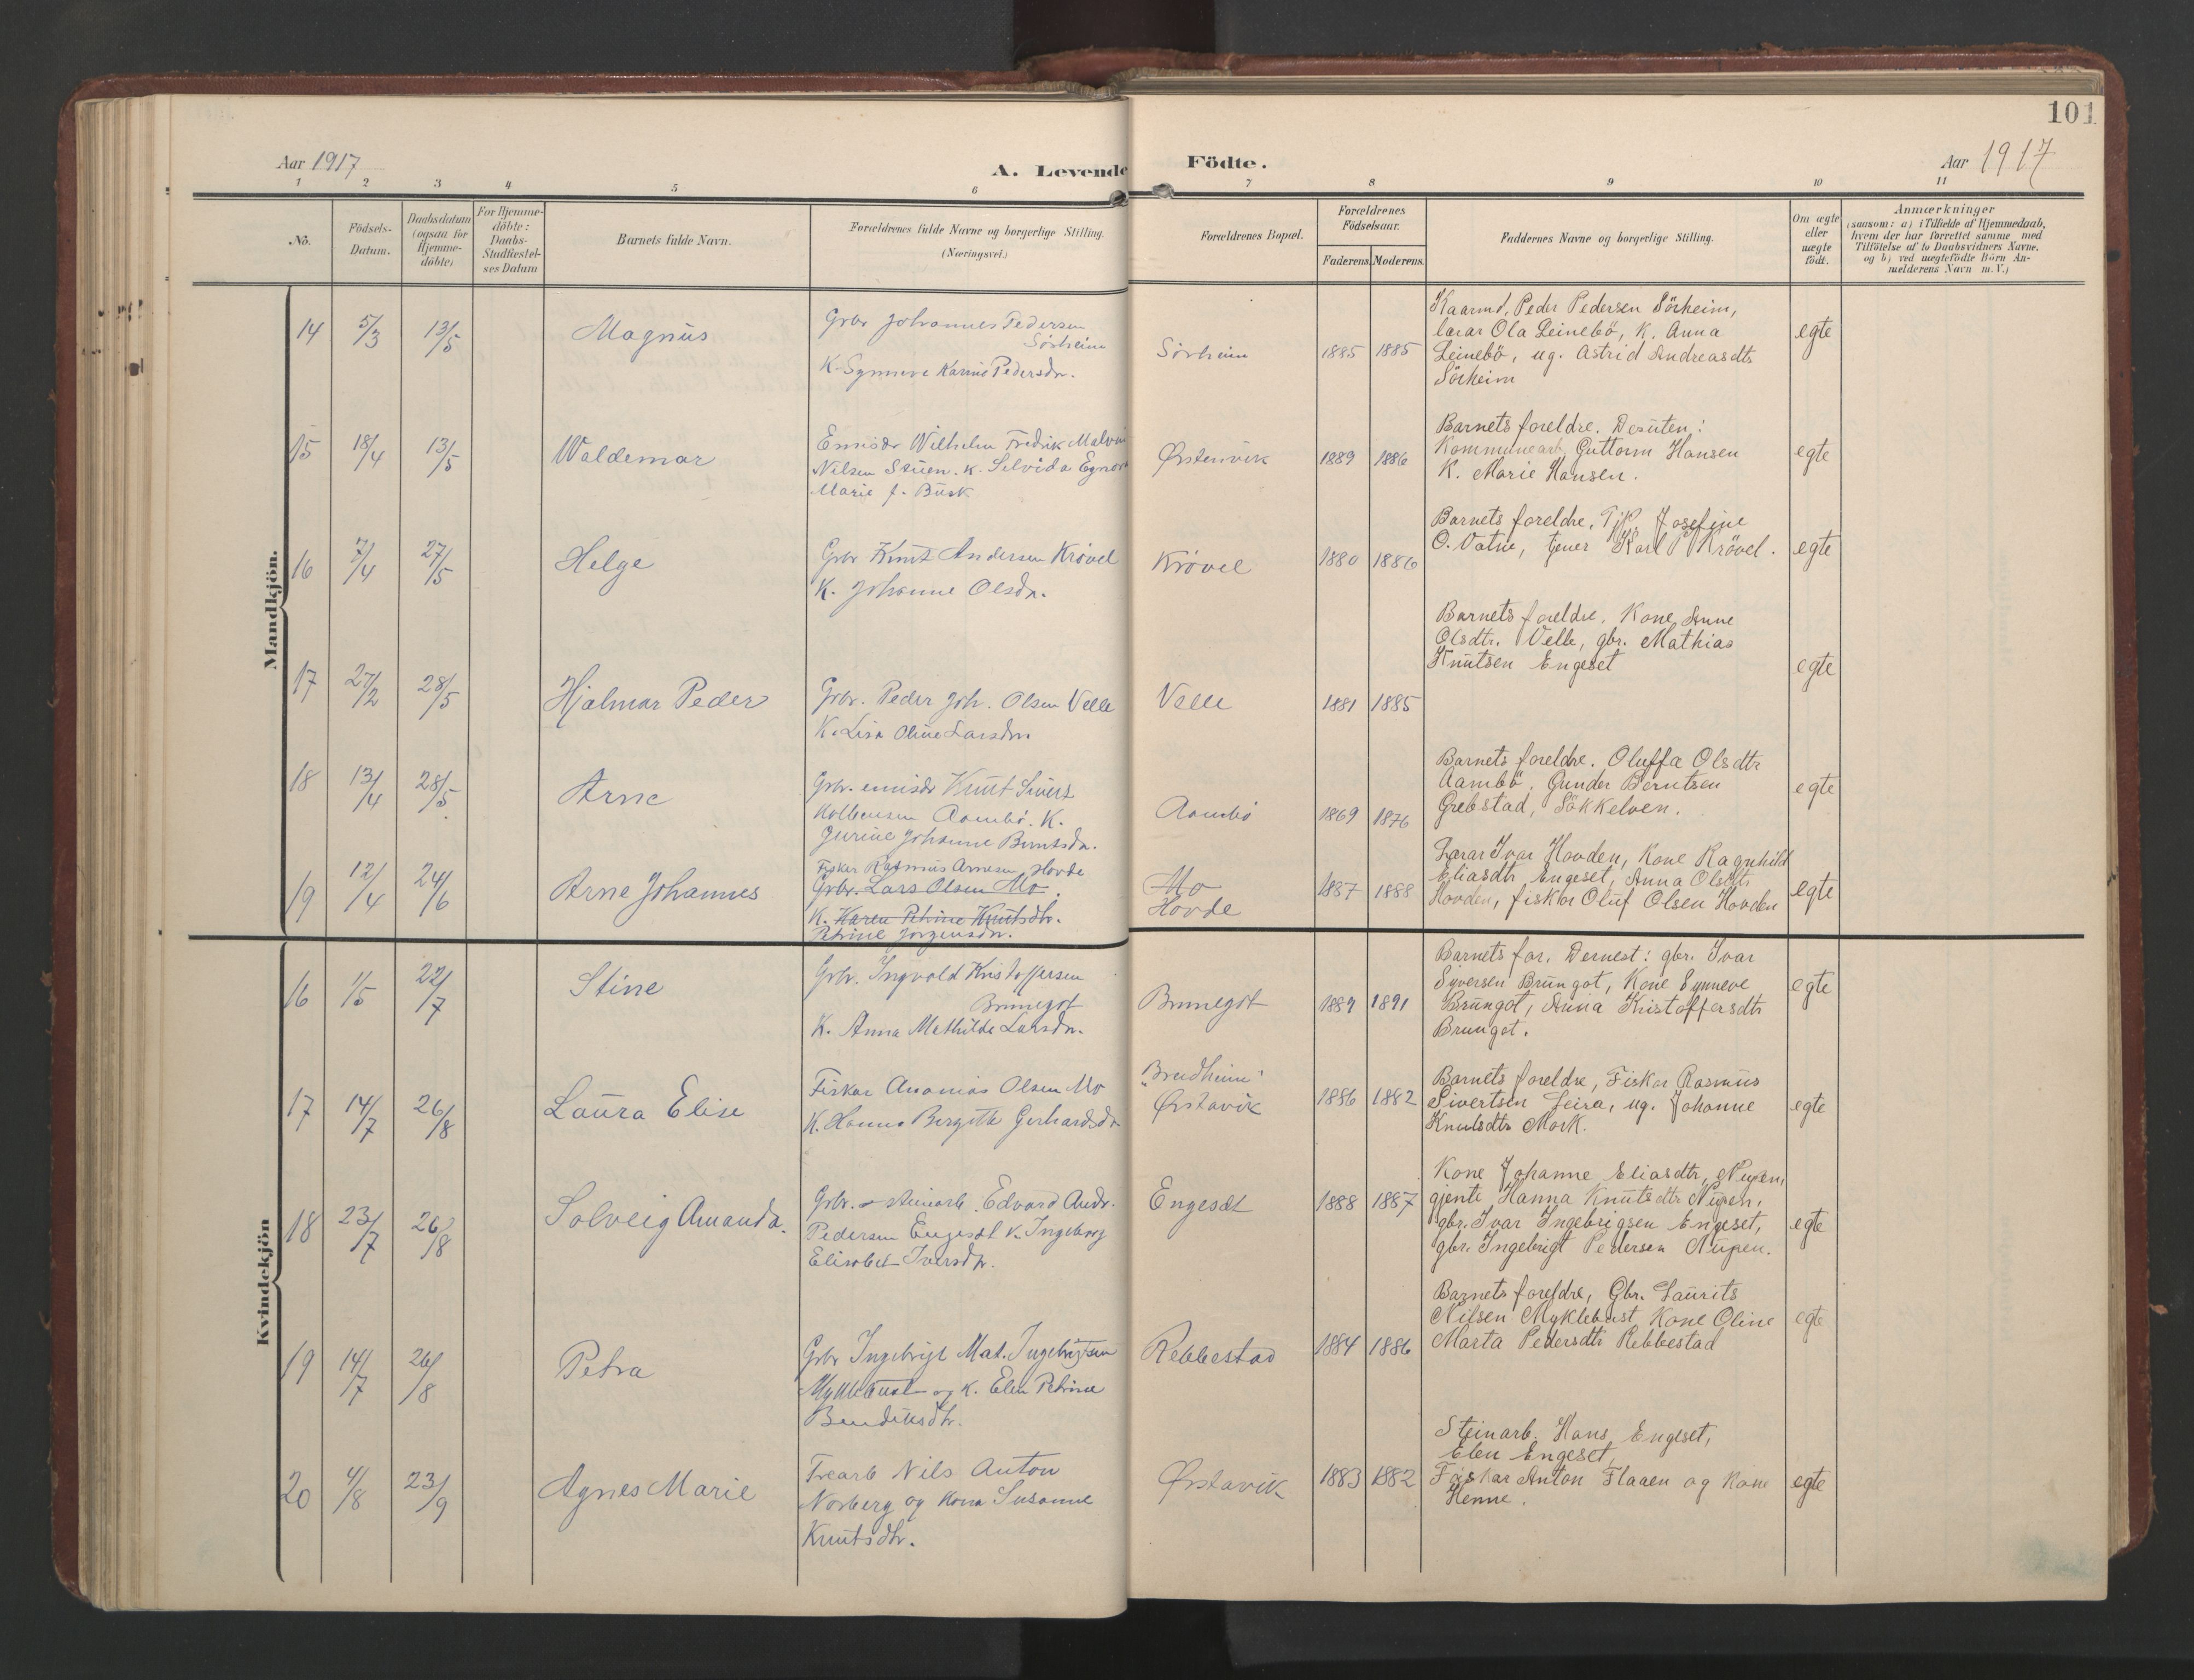 101
Aar 1917
A. Levende Födte.
Aar 1917
1 2 3 4 5 6 7 8 9 10 11
No.
Födsels-Datum.
Daabsdatum (ogsaa for Hjemme-döbte)
For Hjemme-döbte: Daabs-Stadfæstel-ses Datum
Barnets fulde Navn.
Forældrenes fulde Navne og borgerlige Stilling.
(Næringsvei.)
Forældrenes Bopæl.
Forældrenes Födselsaar.
Faderens. Moderens.
Faddernes Navne og borgerlige Stilling.
Om ægte eller uægte födt.
Anmærkninger
(saasom: a) i Tilfælde af Hjemmedaab,
hvem der har forrettet samme med
Tilföielse af to Daabsvidners Navne,
og b) ved uægtefödte Börn An-
melderens Navn m. V.)
Mandkjön.
14 5/3 13/5 Magnus
Grbr Johannes Pedersen
Sörheim
K. Synneve Karine Pedersdr.
Sörheim 1885 1885
Kaarmd, Peder Pedersen Sörheim,
lærar Ola Leinebö, K. Anna
Leinebö, ug. Astrid Andreasdtr
Sörheim
egte
15 18/4 13/5 Waldemar
Emisær Wilhelm Fredrik Malvin
Nilsen Stüen. K. Selvida
Marie f. Busk
Ørstenvik 1889 1886
Barnets foreldre. Desüten:
Kommunearb, Guttorm Hansen
K. Marie Hansen.
egte
16 7/4 27/5 Helge
Grbr Knut Andersen Krövel
K. Johanne Olsdr.
Krövel 1880 1886
Barnets foreldre, Josefine
O. Vatne, tjener Karl P Krövel.
egte
17 27/2 28/5 Hjalmar Peder
Grbr. Peder Joh. Olsen Velle
K. Lisa Oline Larsdr.
Velle 1881 1885
Barnets foreldre, Kone Anne
Olsdtr. Velle, gbr. Mathias
Knütsen Engeset
egte
18 13/4 28/5 Arne
Grbr. emisær Knut Sivert
Kolbeinsen Aambö. K.
Jurine Johanne Berntsdr.
Aambö 1869 1876
Barnets foreldre. Oluffa Olsdtr
Aambö, Gunder Berntsen
Grebstad, Sökkelven.
egte
19 12/4 24/6 Arne Johannes
Fisker Rasmus Arnesen Hovde
Grbr. Lars Olsen Mo.
K. Karen Petrine Knutsdtr.
Petrine Jörgensdr.
Mo
Hovde
1887 1888
Lærar Ivar Hovden, Kone Ragnhild
Eliasdtr Engeset, Anna Olsdtr
Hovden, fiskar Oluf Olsen Hovden
egte
Kvindekjön
16 1/5 22/7 Stine
Grbr. Ingvald Kristoffersen
Brunegot
K. Anna Mathilde Larsdr.
Brunegot 1889 1891
Barnets for. Dernest: gbr. Ivar
Syversen Brüngot, Kone Synneve
Brüngot, Anna Kristoffersdtr
Brungot.
egte
17 14/7 26/8 Laüra Elise
Fiskar Ananias Olsen Mo
K. Hanna Bergitte Gerhardsdr
"Breidheim"
Ørstavik
1886 1882
Barnets foreldre, Fiskar Rasmus
Sivertsen Leira, ug. Johanne
Knutsdtr Mork.
egte
18 23/7 26/8 Solveig Amanda.
Grbr. - steinarb. Edvard Andr.
Pedersen Engeset K. Ingeborg
Elisabet Iversdr.
Engeset 1888 1887
Kone Johanne Eliasdtr, Nupen,
gjente Hanna Knütsdtr Nüpen,
gbr. Ivar Ingebrigsen Engeset,
gbr. Ingebrigt Pedersen Nüpen.
egte
19 14/7 26/8 Petra
Grbr Ingebrigt Mat. Ingebrigtsen
Myklebust og K. Elen Petrine
Bendiksdtr.
Rebbestad 1884 1886
Barnets foreldre, Gbr. Laurits
Nilsen Myklebust, Kone Oline
Marta Pedersdtr Rebbestad
egte
20 4/8 23/9 Agnes Marie
Trearb Nils Anton
Norberg og kona Susanne
Knutsdtr.
Ørstavik 1883 1882
Steinarb. Hans Engeset,
Elen Engeset,
Fiskar Anton Flaaen og Kone
Henne.
egte